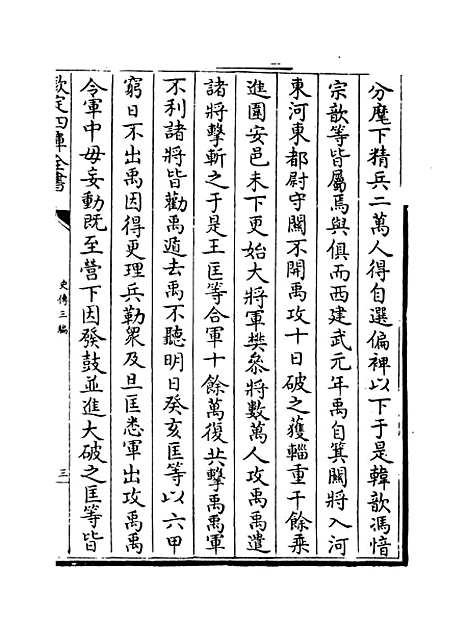 分麾下精兵二萬人得自選偏裨以下于是韓歆馮愔
宗歆等皆屬焉與俱而西建武元年禹自箕關將入河
東河東都尉守關不開禹攻十日破之獲輜重千餘乘
進圍安邑未下更始大將軍樊參將數萬人攻禹禹遣
諸將擊斬之于是王匡等合軍十餘萬復共擊禹禹軍
不利諸將皆勸禹遁去禹不聽明日癸亥匡等以六甲
窮日不出禹因得更理兵勒衆及旦匡悉軍出攻禹禹
令軍中毋妄動既至營下因發鼓並進大破之匡等皆
欽定四庫全書
史傳三編
三